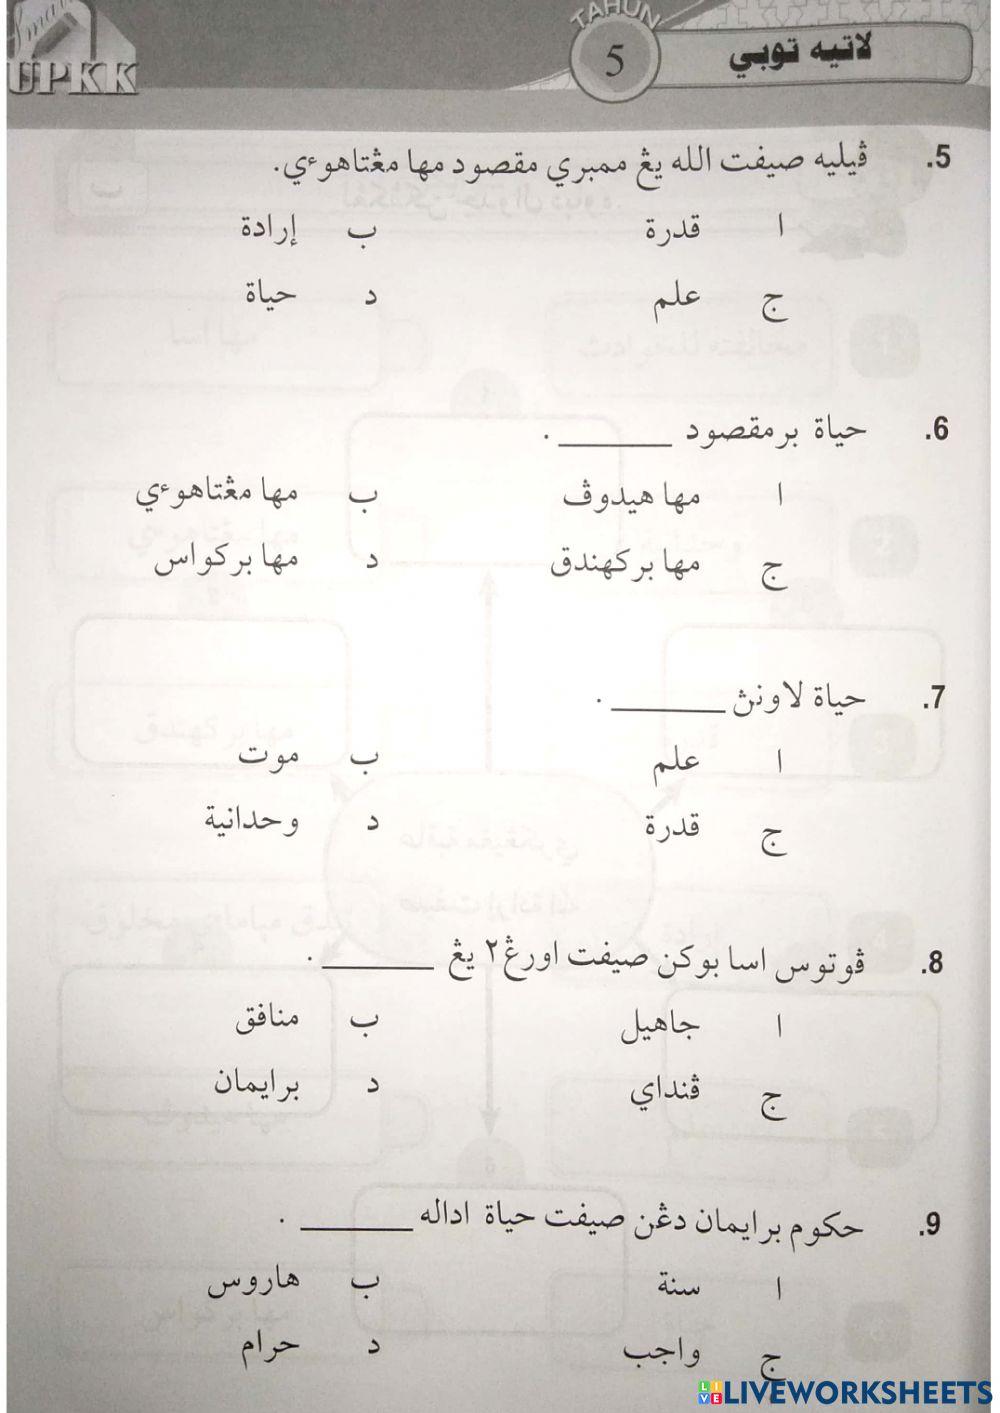 Smart
UPKK
TAHUN
5
لاتيه توبي
5. ڤيليه صيفت الله يڠ ممبري مقصود مها مڠتاهوءي.
ا قدرة ب إرادة
ج علم د حياة
6. حياة برمقصود _______ .
ا مها هيدوڤ ب مها مڠتاهوءي
ج مها بركهندق د مها بركواس
7. حياة لاونڽ _______ .
ا علم ب موت
ج قدرة د وحدانية
8. ڤوتوس اسا بوكن صيفت اورڠ٢ يڠ _______ .
ا جاهيل ب منافق
ج ڤنداي د برايمان
9. حكوم برايمان دڠن صيفت حياة اداله _______ .
ا سنة ب هاروس
ج واجب د حرام
LIVE LIVEWORKSHEETS